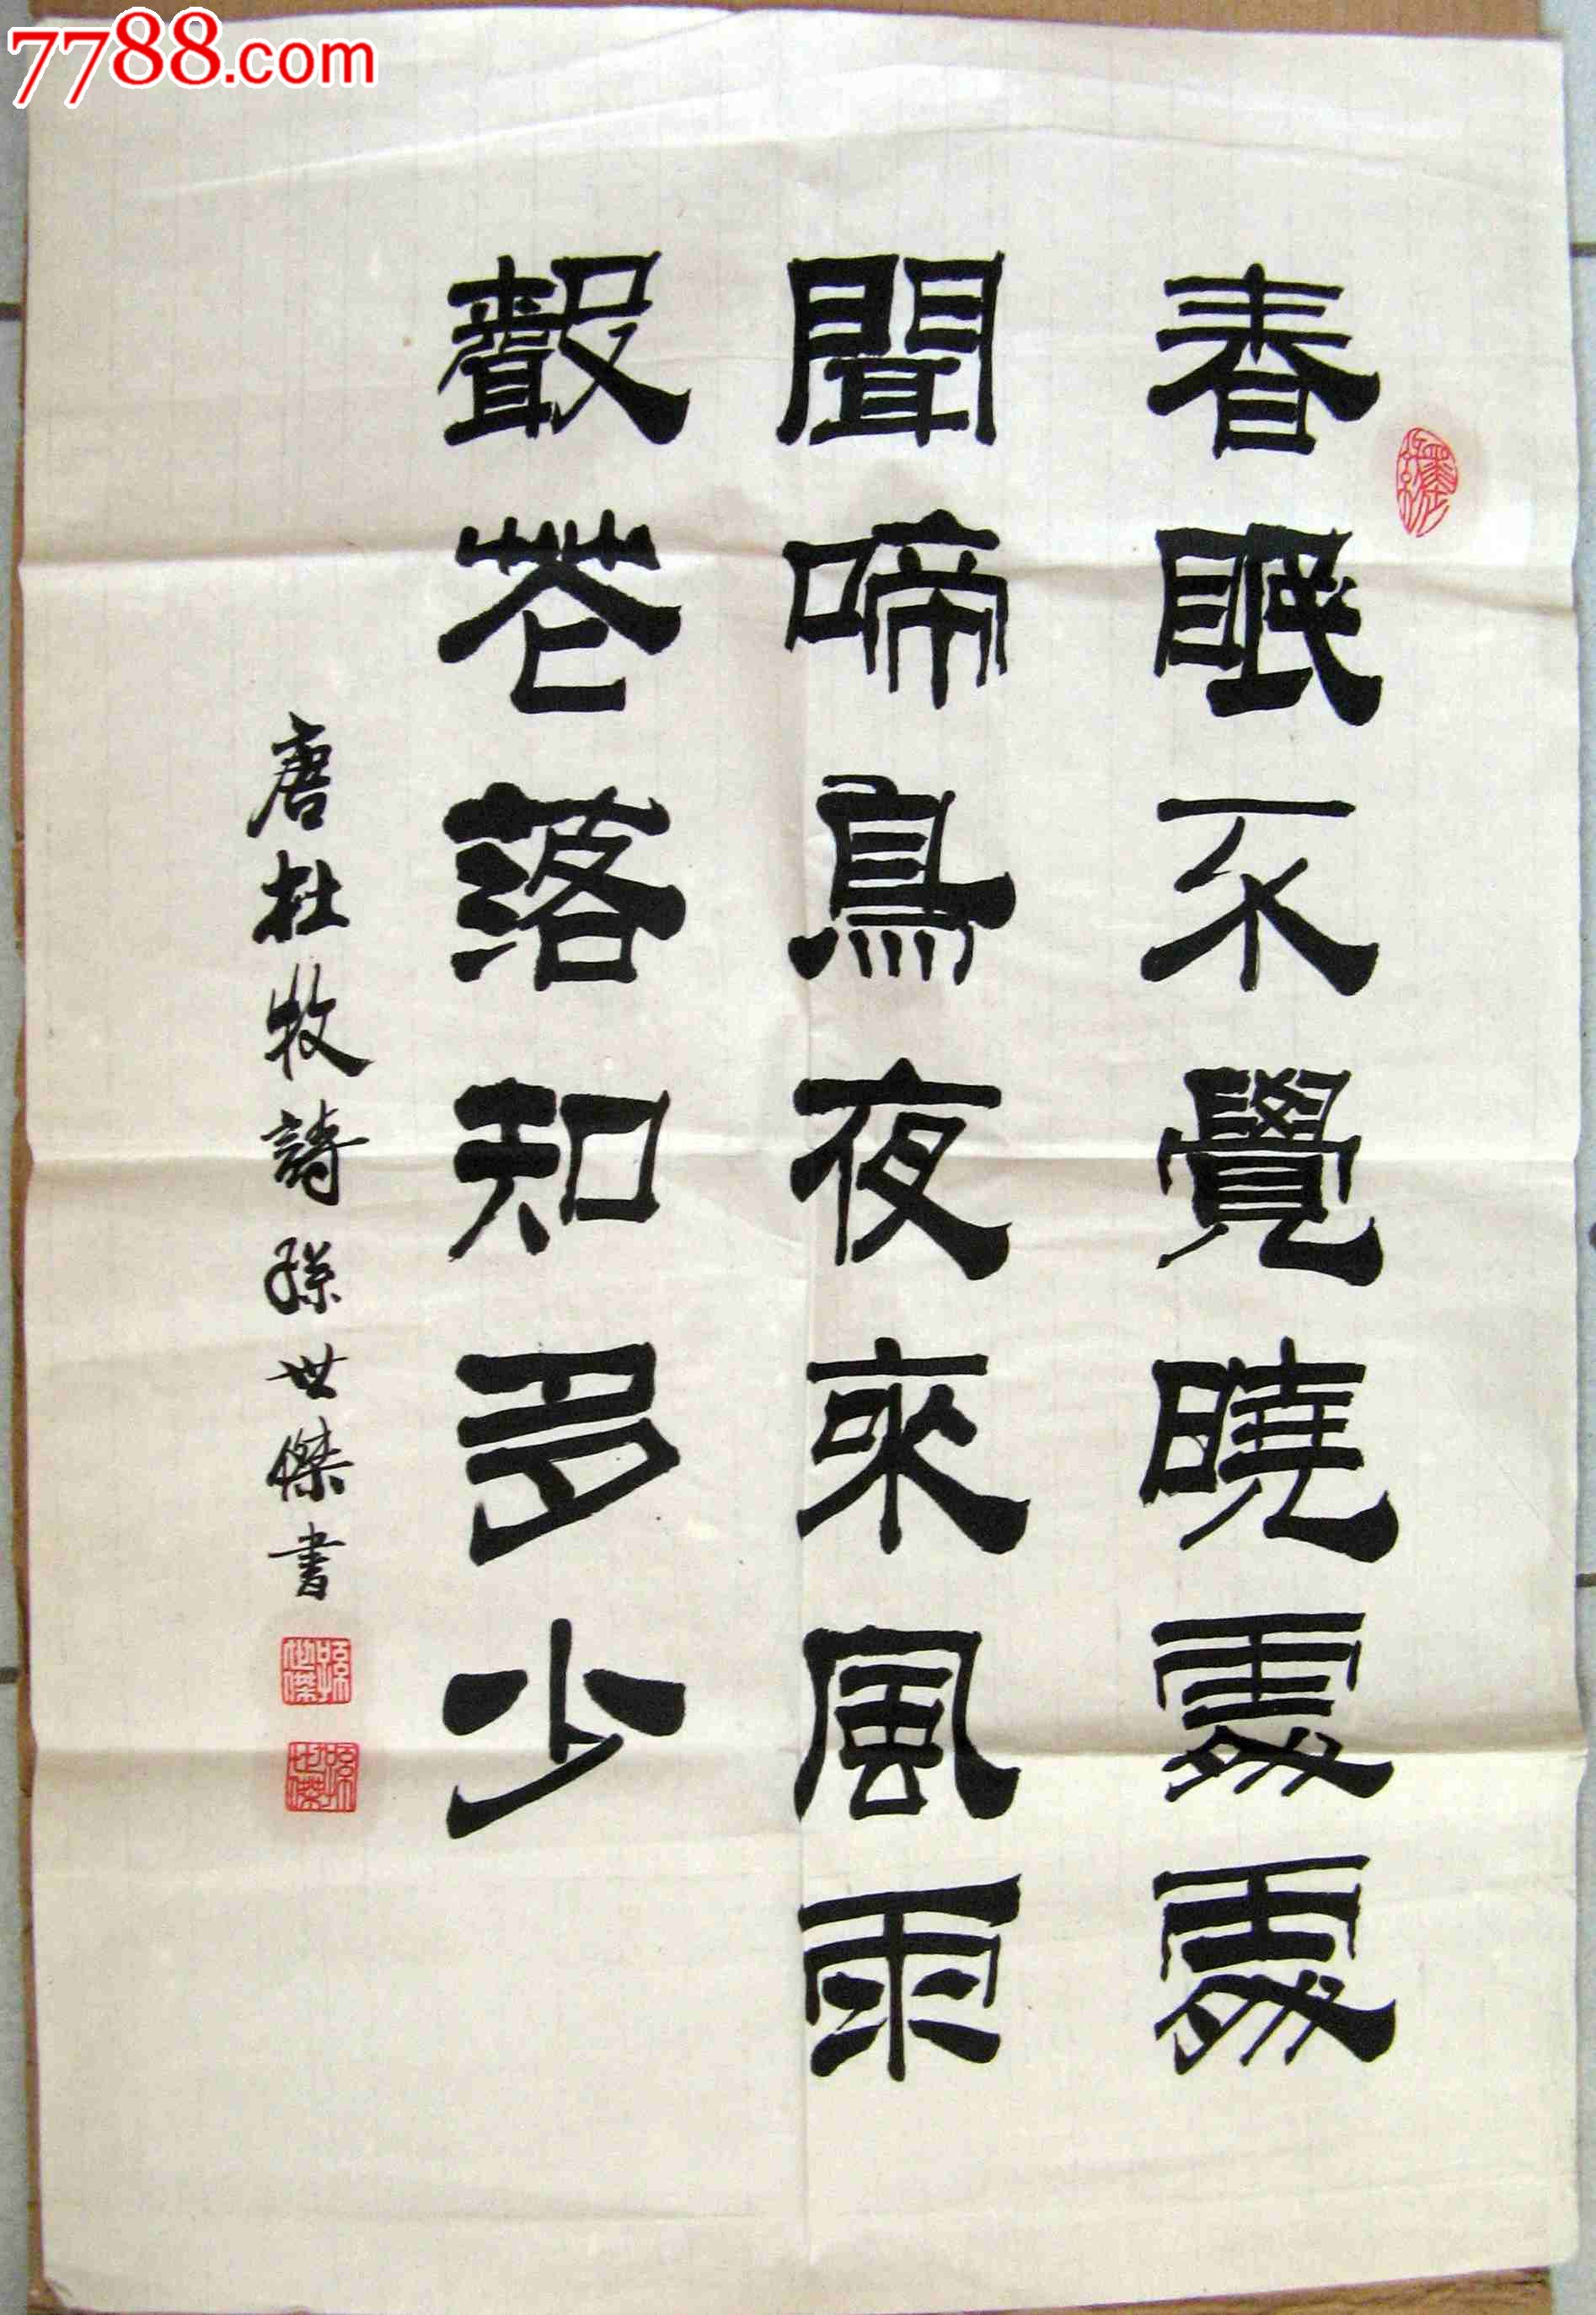 7788.com
春眠不覺曉處處
聞啼鳥夜來風雨
聲花落知多少
唐杜牧詩孫世傑書
孫世傑
孫世傑